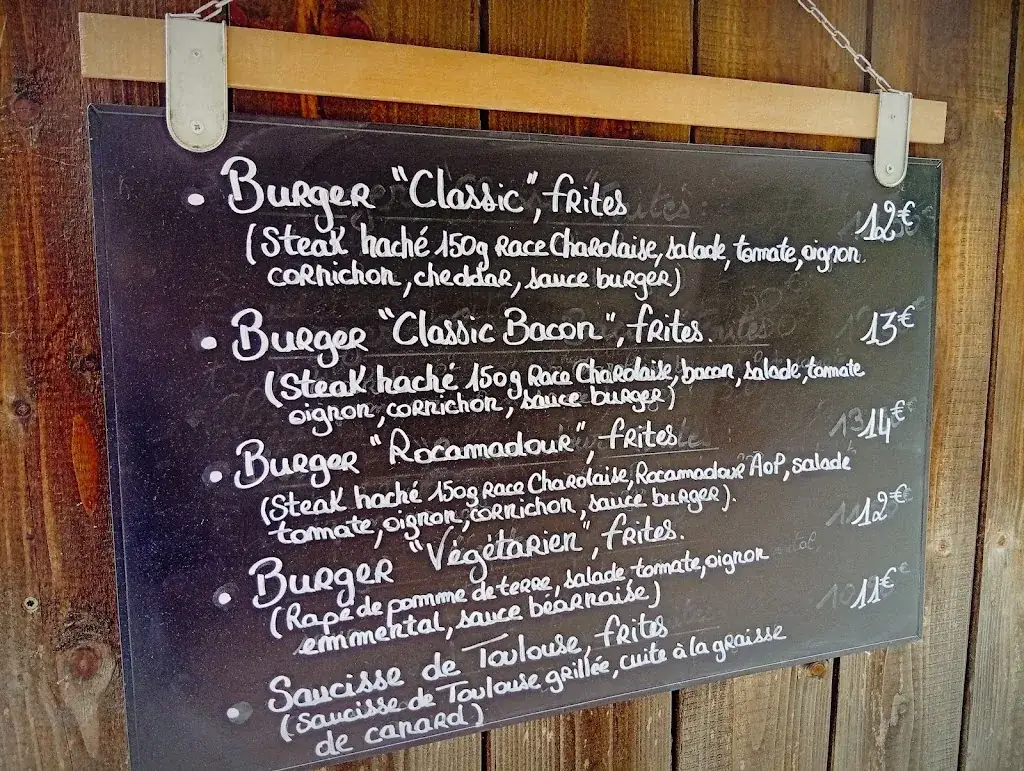 • Burger "Classic", frites 12€
(Steak haché 150g Race Charolaise, salade, tomate, oignon.
cornichon, cheddar, sauce burger)
• Burger "Classic Bacon", frites. 13€
(Steak haché 150g Race Charolaise, bacon, salade, tomate
oignon, cornichon, sauce burger)
• Burger "Rocamadour", frites 14€
(Steak haché 150g Race Charolaise, Rocamadour AOP, salade
tomate, oignon, cornichon, sauce burger).
• Burger "Végétarien", frites. 12€
(Rapé de pomme de terre, salade tomate, oignon
emmental, sauce béarnaise)
• Saucisse de Toulouse, frites 11€
(Saucisse de Toulouse grillée, cuite à la graisse
de canard)